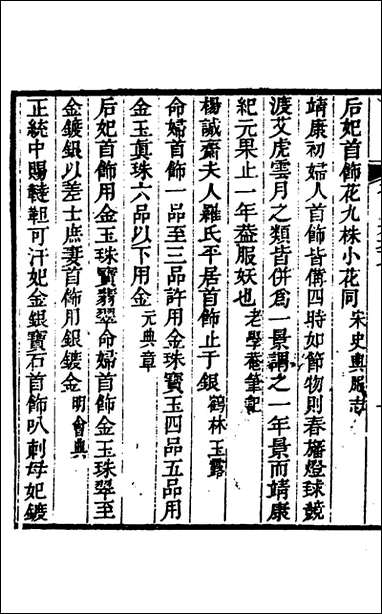 后妃首飾花九株小花同 宋史輿服志
靖康初婦人首飾皆備四時如節物則春旛燈球競
渡艾虎雲月之類皆併為一景謂之一年景而靖康
紀元果止一年葢服妖也 老學菴筆記
楊誠齋夫人羅氏平居首飾止于銀 鶴林玉露
命婦首飾一品至三品許用金珠寶玉四品五品用
金玉眞珠六品以下用金 元典章
后妃首飾用金玉珠寶翡翠命婦首飾金玉珠翠至
金鍍銀以差士庶妻首飾用銀鍍金 明會典
正統中賜韃靼可汗妃金銀寶石首飾叭剌母妃鍍